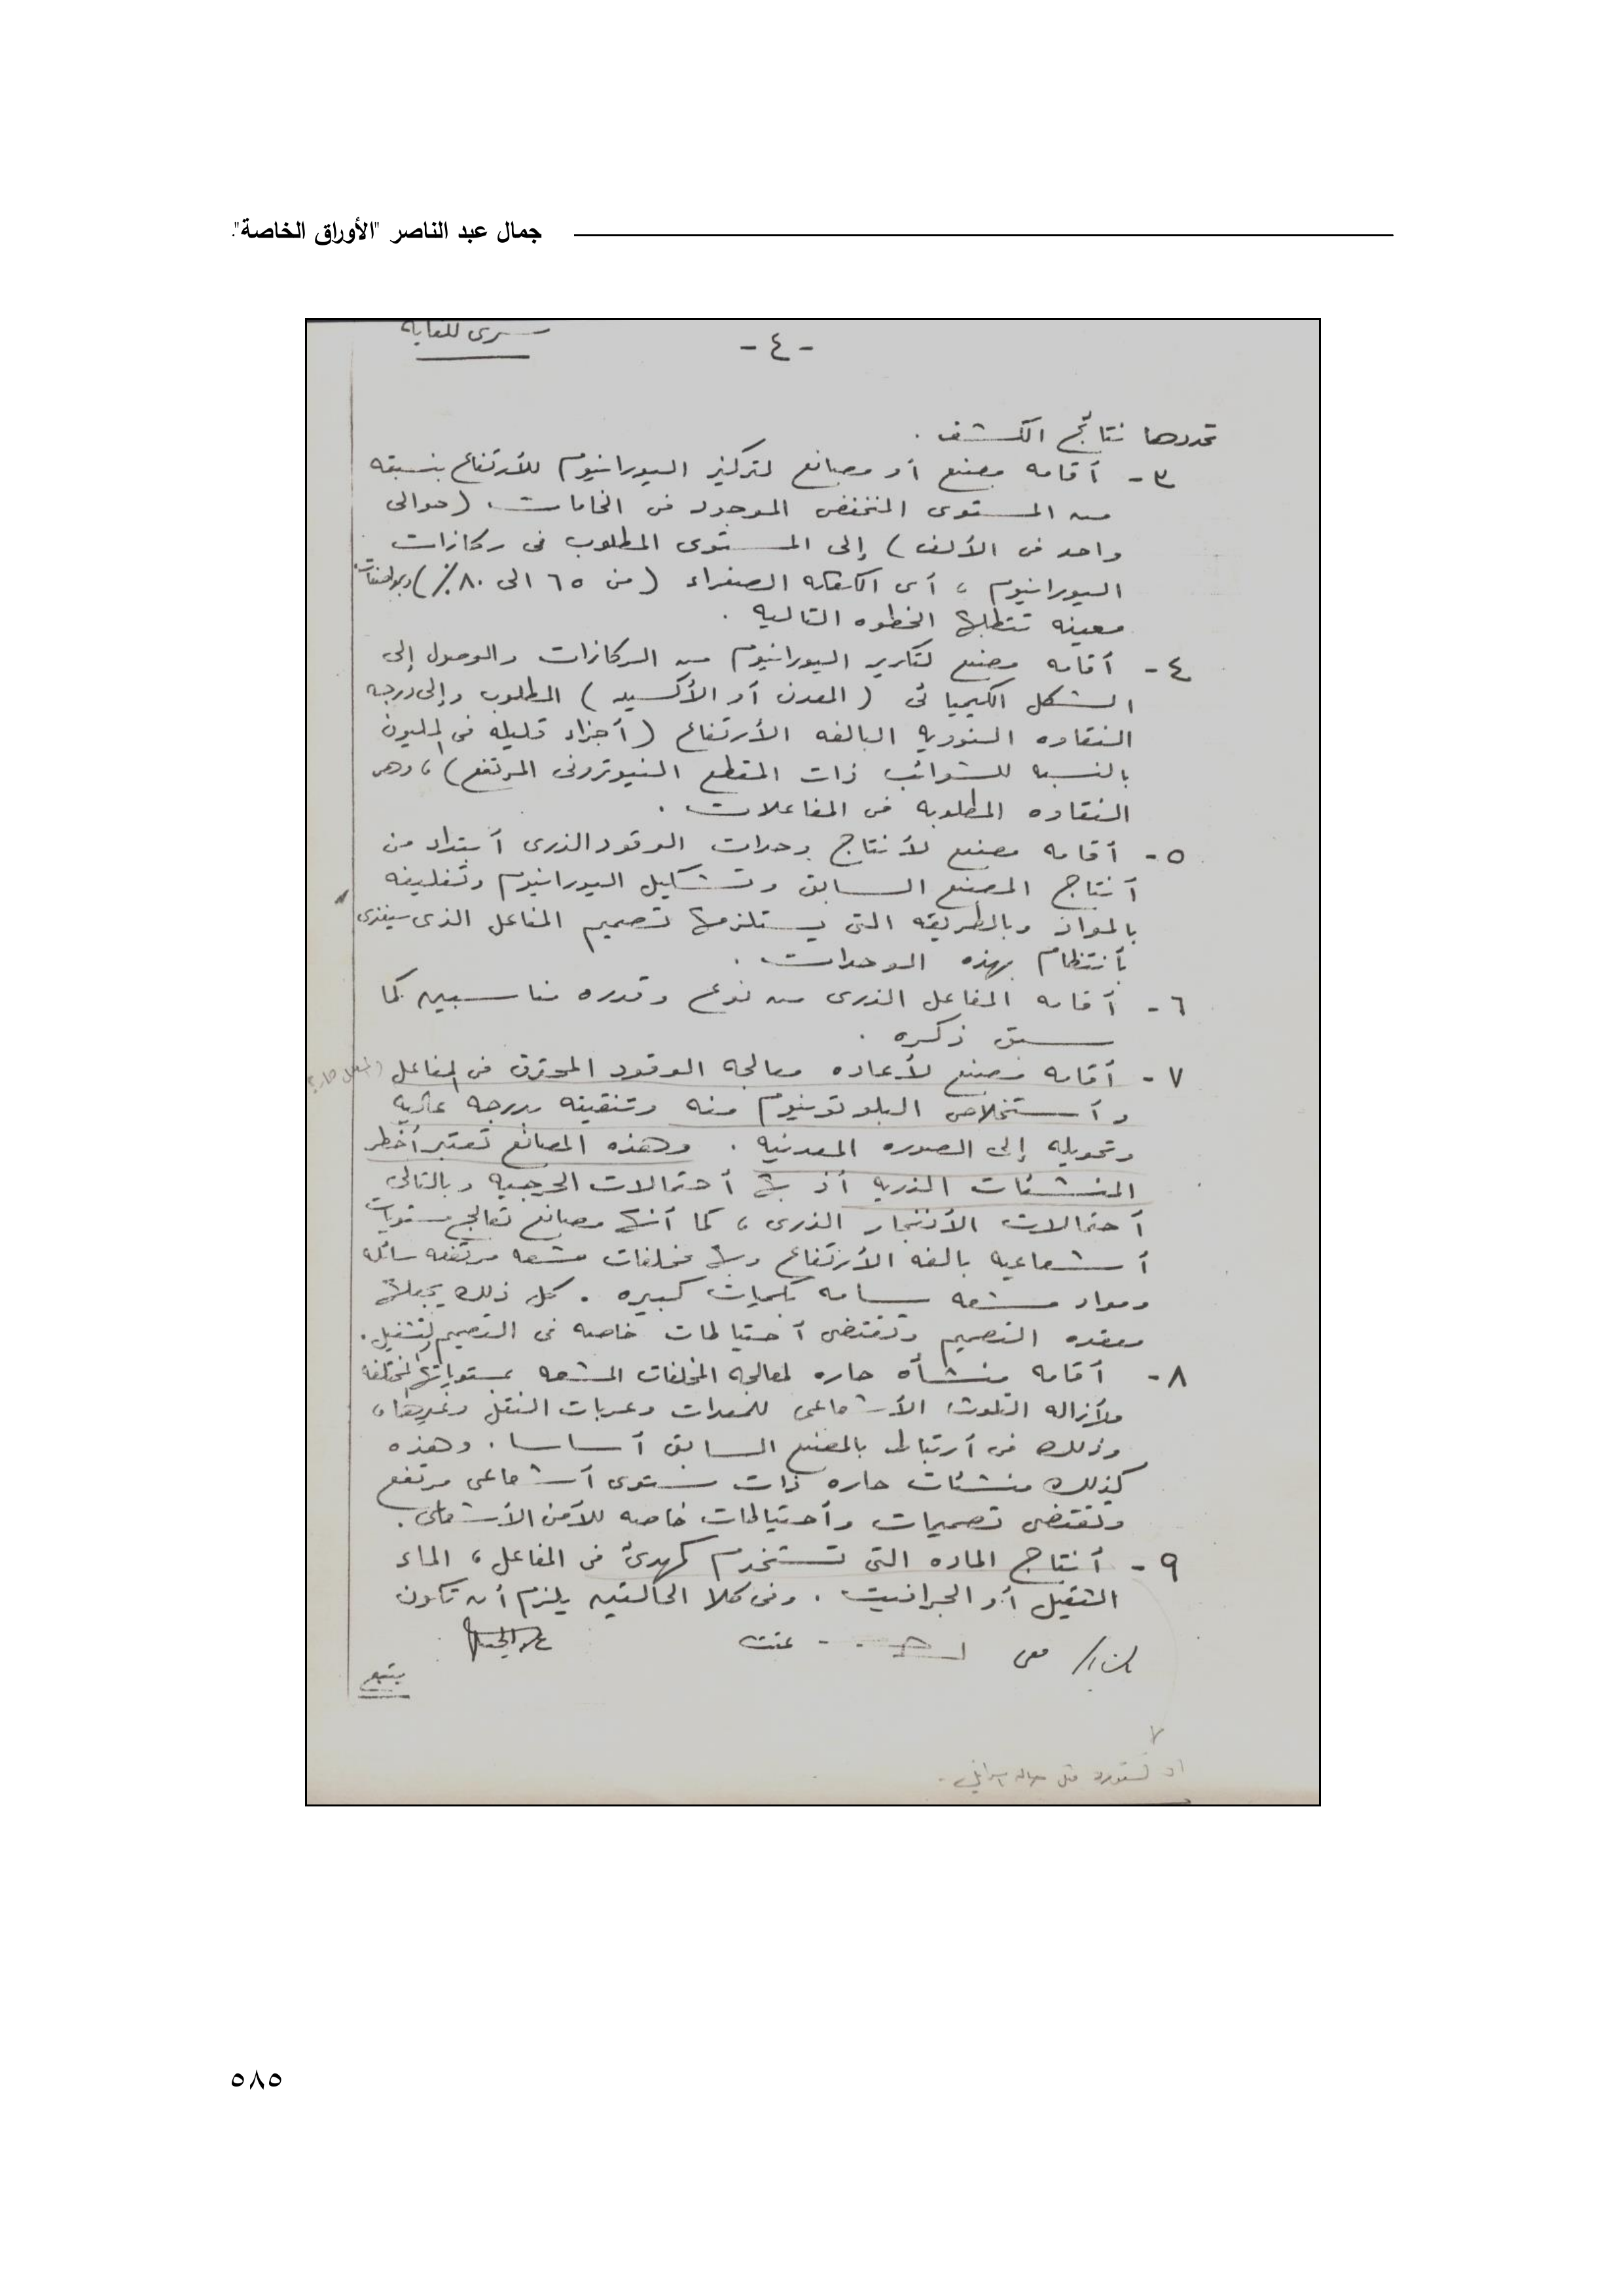 جمال عبد الناصر "الأوراق الخاصة".
سرى للغايه
- ٤ -
تحددها نتائج الكشف .
٣ - أقامه مصنع أو مصانع لتركيز اليورانيوم للأرتفاع بنسبته
من المستوى المنخفض الموجود فى الخامات . (حوالى
واحد فى الألف) إلى المستوى المطلوب فى ركازات
اليورانيوم ، أى الكعكه الصفراء (من ٦٥ الى ٨٠٪) وبمواصفات
معينه تتطلبها الخطوه التاليه .
٤ - أقامه مصنع لتكرير اليورانيوم من الركازات والوصول إلى
الشكل الكيميائى (المعدن أو الأكسيد) المطلوب وإلى درجه
النقاوه النوويه البالغه الأرتفاع (أجزاء قليله فى المليون
بالنسبه للشوائب ذات المقطع النيوترونى المرتفع) ، وهى
النقاوه المطلوبه فى المفاعلات .
٥ - أقامه مصنع لأنتاج وحدات الوقود الذرى أبتداء من
أنتاج المصنع السابق وتشكيل اليورانيوم وتغليفه
بالمواد وبالطريقه التى يستلزمها تصميم المفاعل الذى سيغذى
بأنتظام بهذه الوحدات .
٦ - أقامه المفاعل الذرى من نوع وقدره مناسبين كما
سبق ذكره .
٧ - أقامه مصنع لأعاده معالجه الوقود المحترق فى المفاعل
وأستخلاص البلوتونيوم منه وتنقيته بدرجه عاليه
وتحويله إلى الصوره المعدنيه . وهذه المصانع تعتبر أخطر
المنشئات الذريه أذ بها أحتمالات الحرجيه وبالتالى
أحتمالات الأنفجار الذرى ، كما أنها مصانع تعالج مستويات
أشعاعيه بالغه الأرتفاع وبها مخلفات مشعه مرتفعه سائله
ومواد مشعه سامه بكميات كبيره . كل ذلك يجعلها
معقده التصميم وتقتضى أحتياطات خاصه فى التصميم والتشغيل .
٨ - أقامه منشأه حاره لمعالجه المخلفات المشعه بمستوياتها المختلفه
ولأزاله التلوث الأشعاعى للمعدات وعربات النقل وغيرها ،
وذلك فى أرتباط بالمصنع السابق أساسا . وهذه
كذلك منشئات حاره ذات مستوى أشعاعى مرتفع
وتقتضى تصميمات وأحتياطات خاصه للأمن الأشعاعى .
٩ - أنتاج الماده التى تستخدم كمهدئ فى المفاعل ، الماء
الثقيل أو الجرافيت . وفى كلا الحالتين يلزم أن تكون
يتبع
٥٨٥